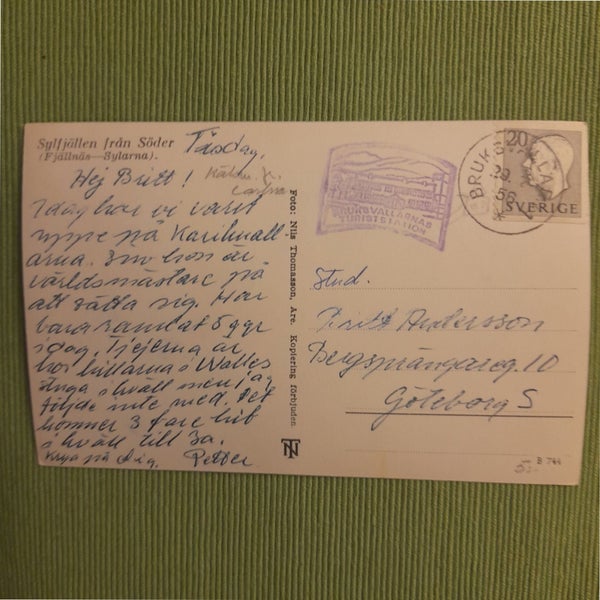 Sylfjällen från Söder
(Fjällnäs—Sylarna).
Tisdag.
Hej Britt!
Idag har vi varit
uppe på Karihuall
arna. Snön är
världsmästare på
att sätta sig. Har
bara ramlat 5 ggr
idag. Tjejerna är
hos killarna i Walles
stuga i kväll men jag
följde inte med. Det
kommer 3 fare hit
i kväll till Ia.
Krya på dig. Petter
Foto: Nils Thomasson, Åre. Kopiering förbjuden.
NT
BRUKSVALLARNAS
TURISTSTATION
BRUKSVALLA
29
56
20
SVERIGE
Stud.
Britt Andersson
Bergsprängareg. 10
Göteborg S
B 744